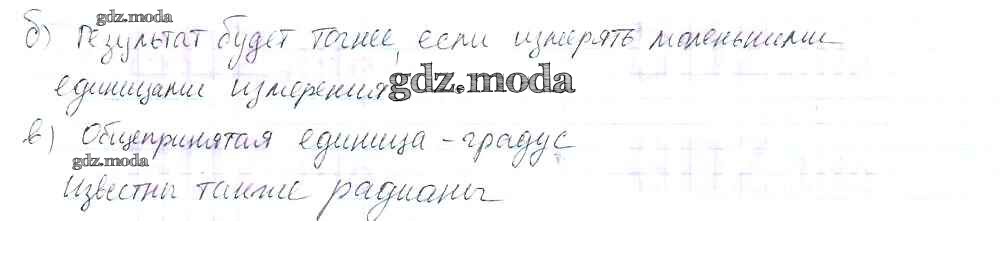 gdz.moda
б) Результат будет точнее, если измерять маленькими
единицами измерения
gdz.moda
в) Общепринятая единица - градус
gdz.moda
Известны также радианы